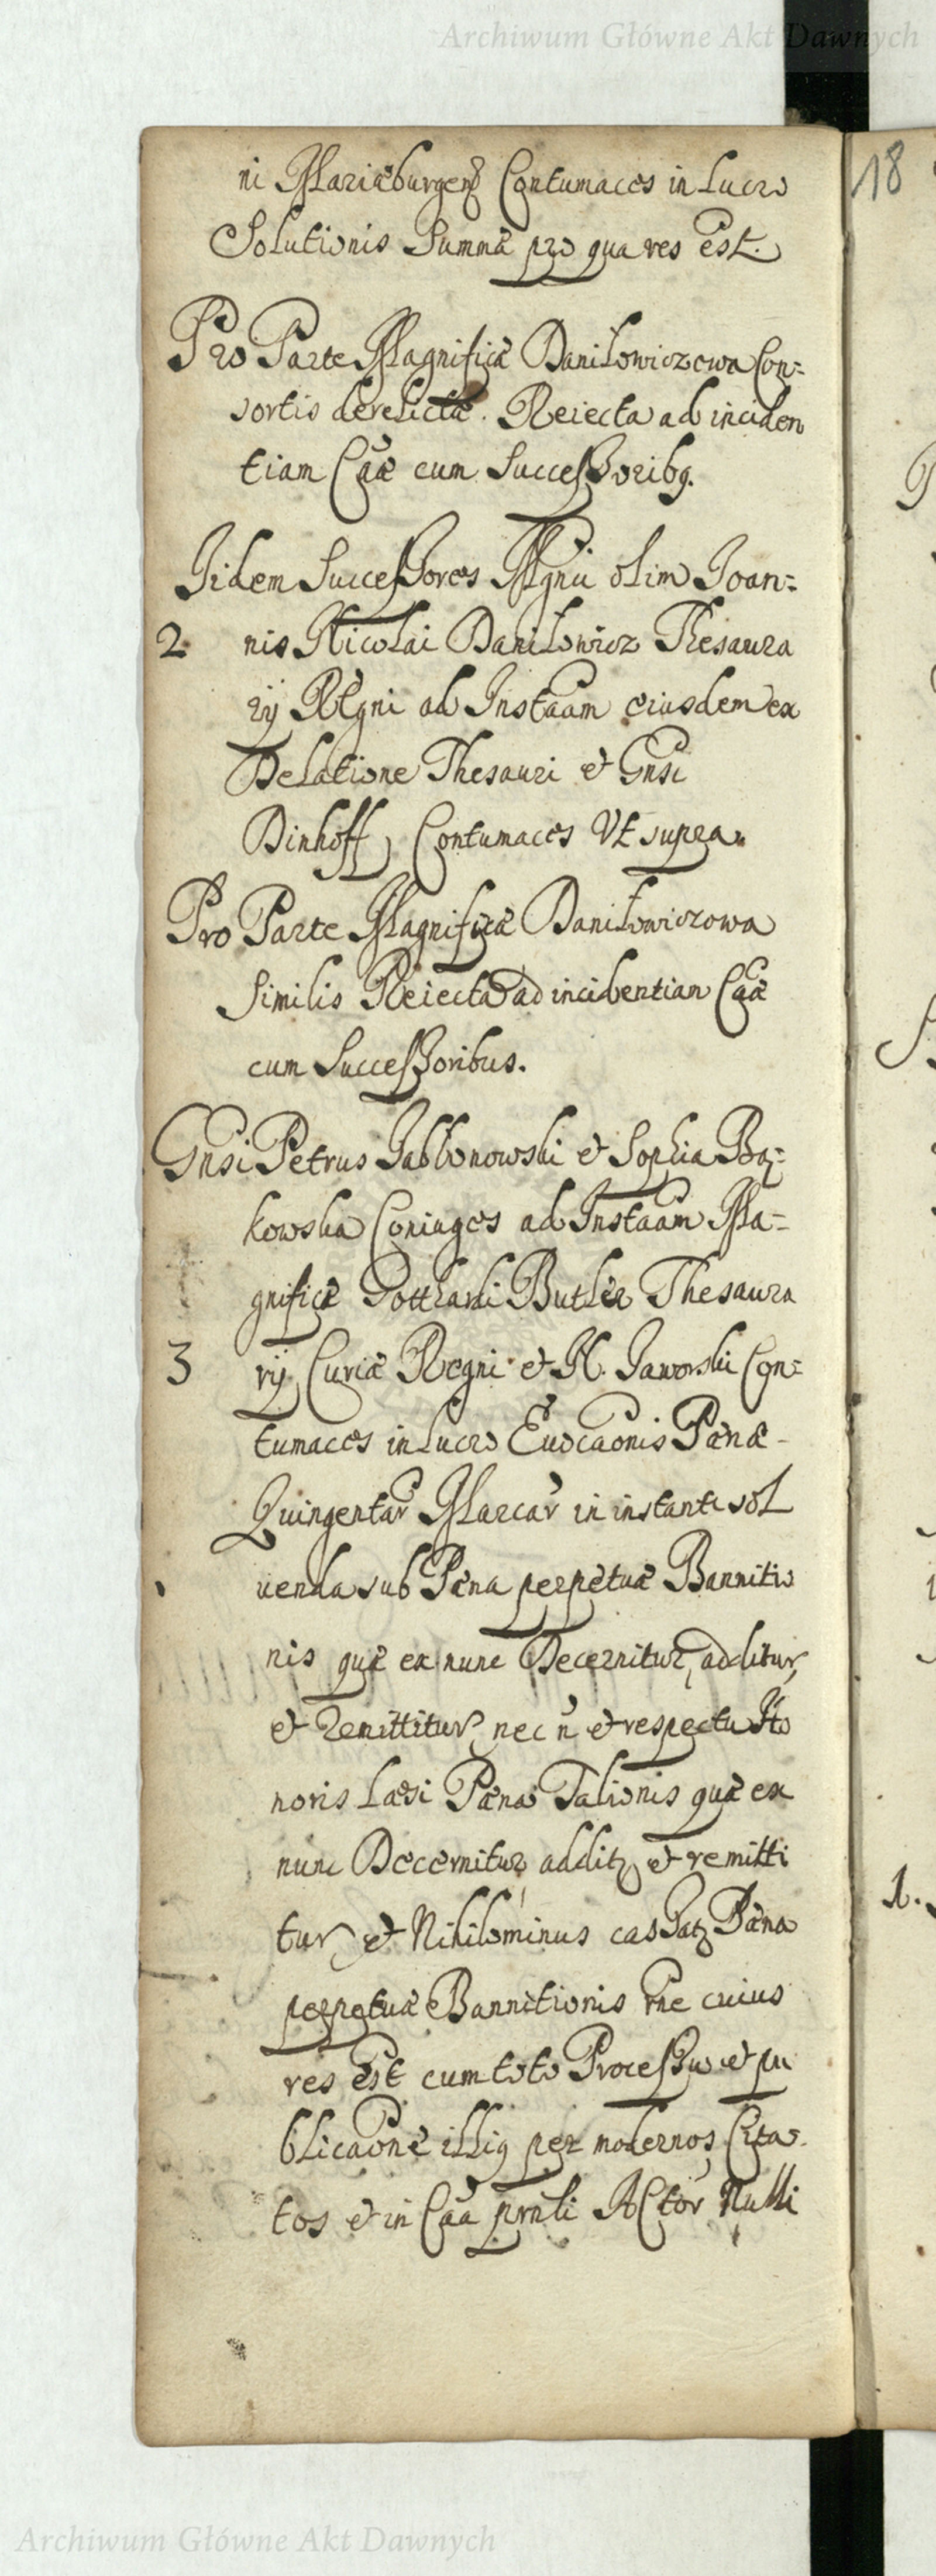 Archiwum Główne Akt Dawnych
ni Mariæburgens Contumaces in Lucro
Solutionis Summæ pro qua res est.
18
Pro Parte Magnificæ Daniłowiczowa Con=
sortis derelictæ. Reiecta ad inciden
tiam Cãæ cum Successoribq.
Iidem Successores Mgnii olim Ioan=
2 nis Nicolai Daniłowicz Thesaura
rij Regni ad Instãam eiusdem ex
Delatione Thesauri et Gnsi
Dinhoff, Contumaces Vt supra.
Pro Parte Magnificæ Daniłowiczowa
Similis Reiecta ad incidentiam Cãæ
cum Successoribus.
Gnsi Petrus Jabłonowski et Sophia Bą=
kowska Coniuges ad Instãam Ma=
gnificæ Gotthardi Butler Thesaura
3 rij Curiæ Regni et N. Jaworski Con=
tumaces in Lucro Euocãonis Pænæ
Quingentar̃ Marcar̃ in instanti sol
uenda sub Pæna perpetuæ Bannitio
nis quæ ex nunc Decernitur, additur,
et remittitur, nec ñ et respectu Ho
noris Læsi Pæna Talionis quæ ex
nunc Decernitur additq et remitti
tur, et Nihilominus cassatq Pæna
perpetuæ Bannitionis rñe cuius
res est cum toto Processu et pu
blicãone illiq per modernos Cita=
tos et in Cãa prnti Actor̃ Nulli
1.
Archiwum Główne Akt Dawnych